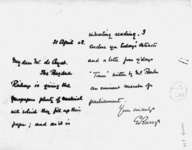 21 April 08.
My dear
The Bagdad
Railway is giving the
newspapers plenty of material
with which they fill up their
paper; and it is
interesting reading. I
enclose you today's extracts
and a letter from today's
"Times" written by Mr
an eminent member of
parliament.
Yours sincerely